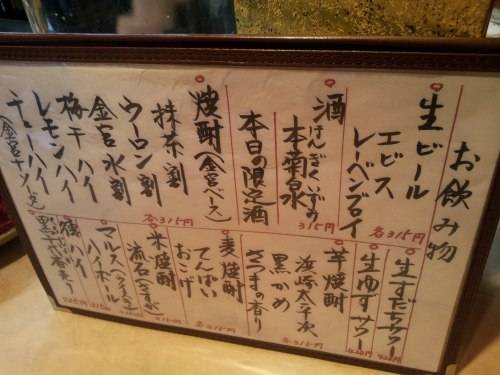 お飲み物
生ビール
エビス
レーベンブロイ
各315円
酒
けんぎくいずみ
本菊泉
本日の限定酒
315円
焼酎(金宮ベース)
抹茶割
ウーロン割
金宮水割
梅干ハイ
レモンハイ
チューハイ
各315円
生すだちサワー
420円
生ゆずサワー
420円
芋焼酎
浜崎太平次
黒かめ
さつまの香り
各315円
麦焼酎
てんぱい
おこげ
各315円
米焼酎
流石(さすが)
マルス(ウイスキー)
ハイボール
315円